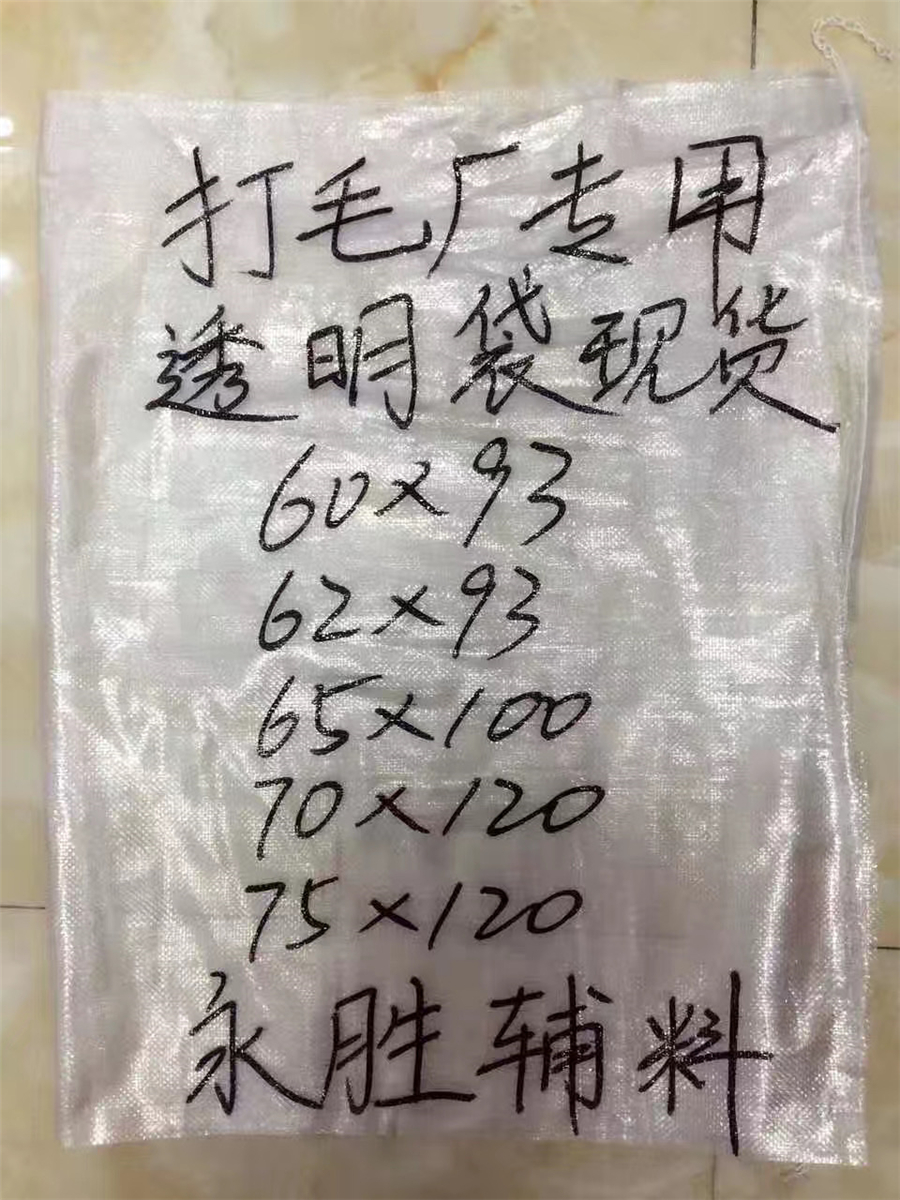 打毛厂专用
透明袋现货
60×93
62×93
65×100
70×120
75×120
永胜辅料